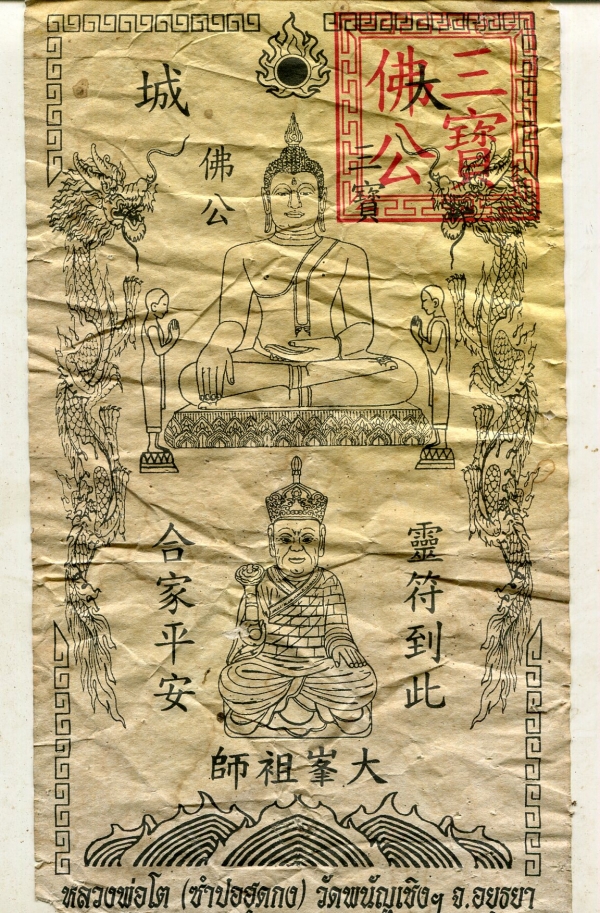 大城
三寶
佛公
三寶
佛公
靈符到此
合家平安
大峯祖師
หลวงพ่อโต (ซำปอฮุดกง) วัดพนัญเชิงฯ จ.อยุธยา